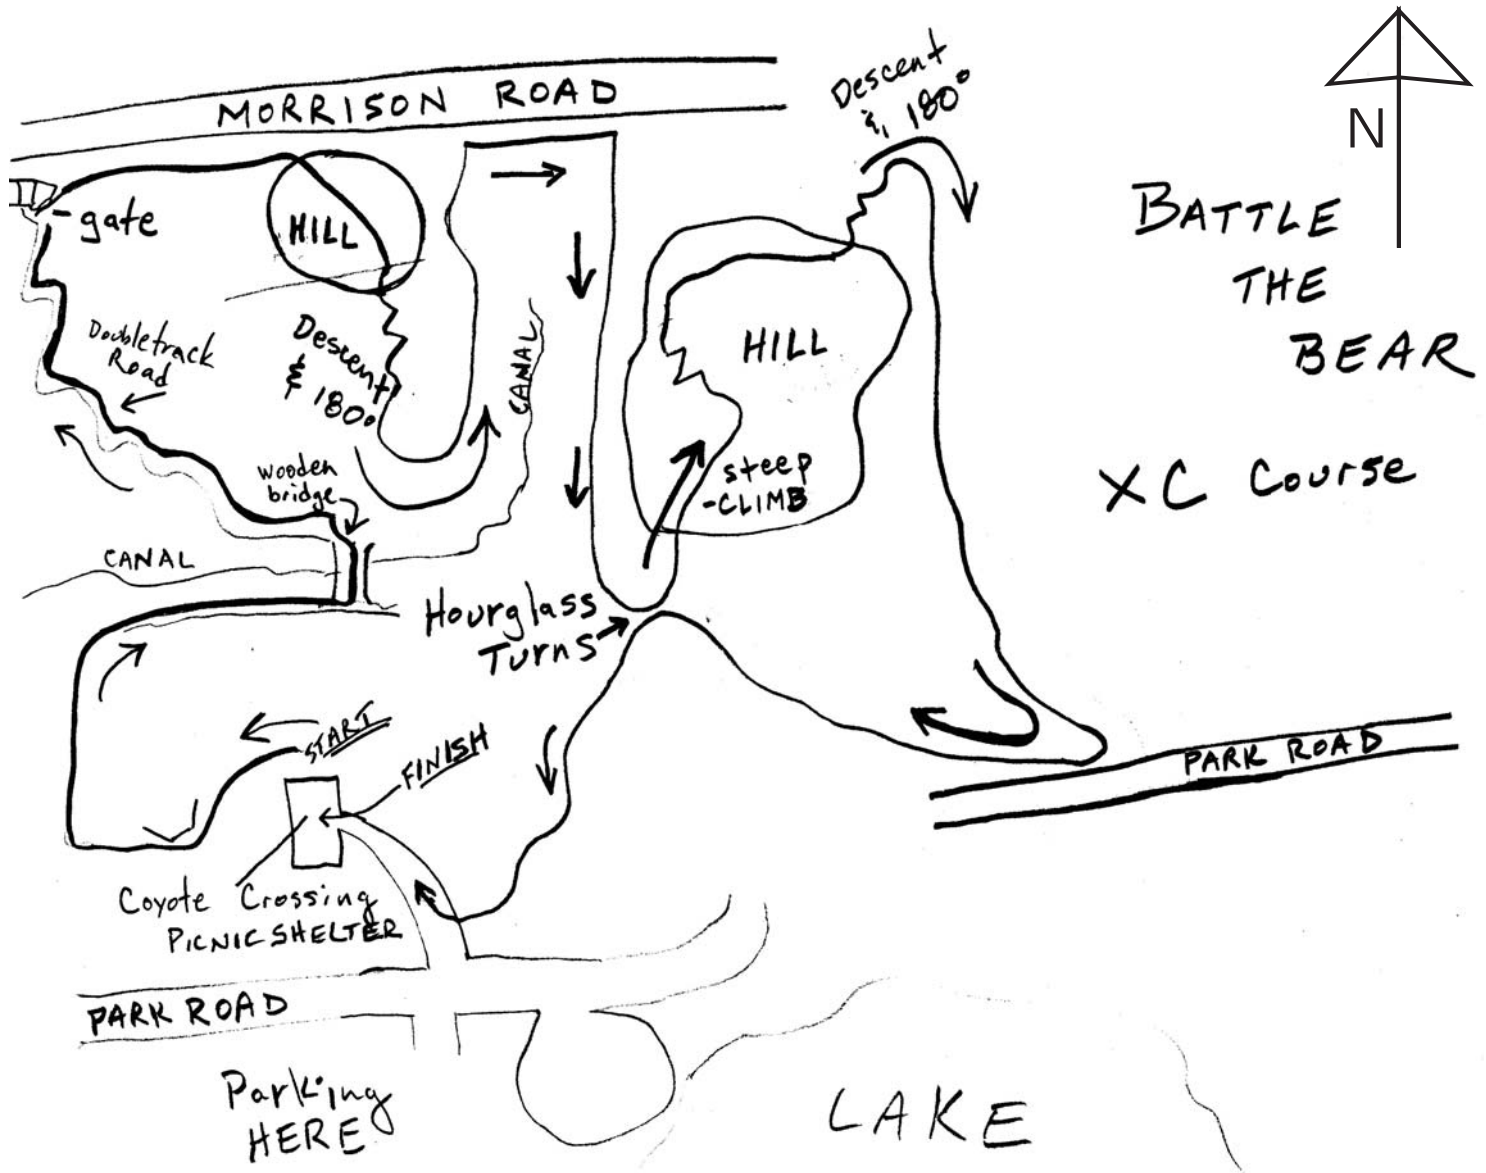 MORRISON ROAD
Descent
&, 180°
N
BATTLE
THE
BEAR
XC Course
gate
HILL
Doubletrack
Road
Descent
& 180°
CANAL
HILL
steep
-CLIMB
wooden
bridge
CANAL
Hourglass
Turns
START
FINISH
PARK ROAD
Coyote Crossing
PICNIC SHELTER
PARK ROAD
Parking
HERE
LAKE